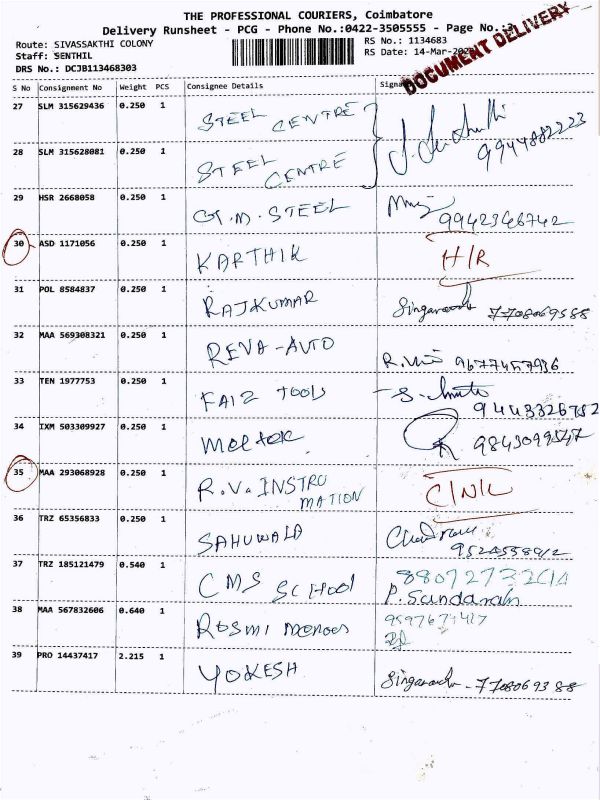 THE PROFESSIONAL COURIERS, Coimbatore
Delivery Runsheet - PCG - Phone No.:0422-3505555 - Page No.:3
Route: SIVASSAKTHI COLONY
RS No.: 1134683
Staff: SENTHIL
RS Date: 14-Mar-
DRS No.: DCJB113468303
DOCUMENT DELIVERY
S No Consignment No Weight PCS Consignee Details
27 SLM 315629436 0.250 1 STEEL CENTRE
9944882223
28 SLM 315628081 0.250 1 STEEL CENTRE
29 HSR 2668058 0.250 1 G.M. STEEL
9942346742
30 ASD 1171056 0.250 1 KARTHIK H/R
31 POL 8584837 0.250 1 RAJKUMAR
32 MAA 569308321 0.250 1 REVA-AUTO
9677457936
33 TEN 1977753 0.250 1 FAIZ TOOLS
34 IXM 503309927 0.250 1 meltek
35 MAA 293068928 0.250 1 R.V. INSTRO
MATION
36 TRZ 65356833 0.250 1 SAHUWALA
37 TRZ 185121479 0.540 1 CMS School
38 MAA 567832606 0.640 1
39 PRO 14437417 2.215 1 YOKESH